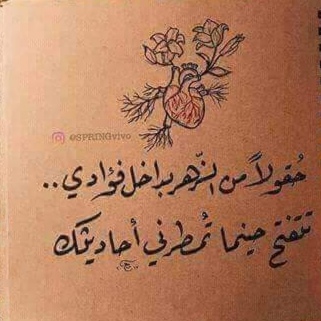 @SPRINGvivo
حُقولاً من الزّهر بداخل فؤادي..
تتفتح حينما تُمطرني أحاديثك